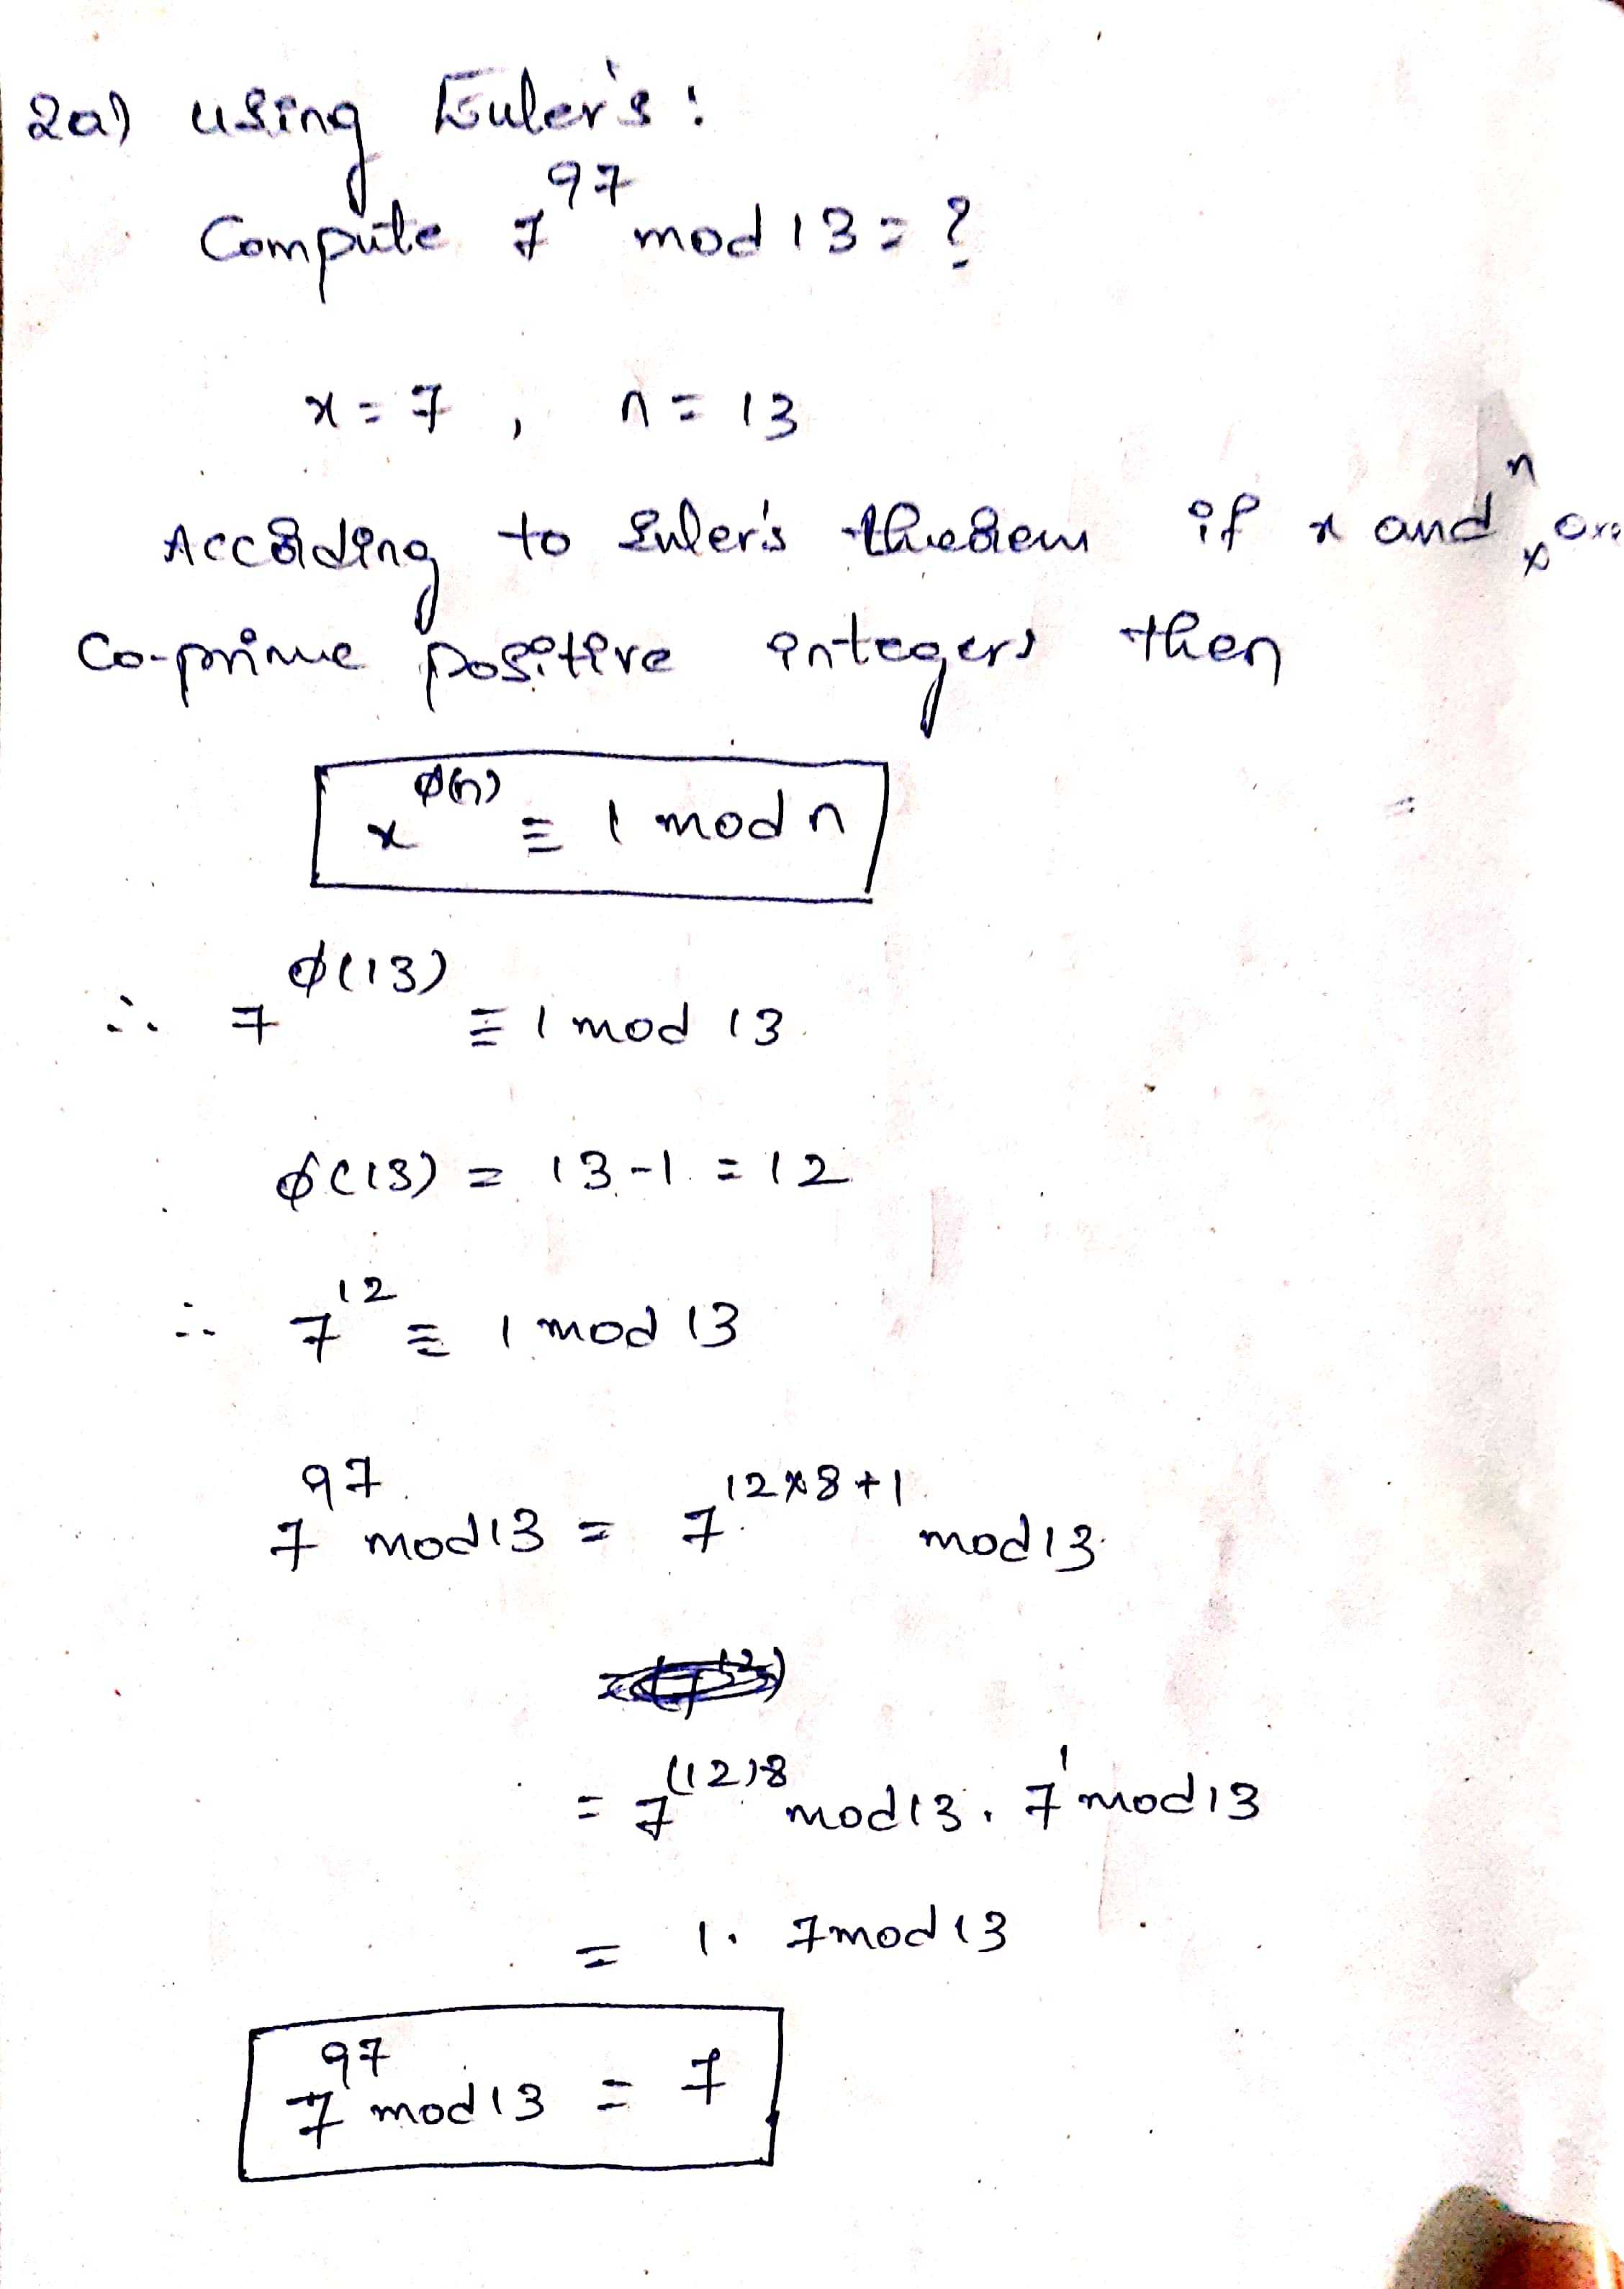 2a) using Euler's :
Compute 7^97 mod 13 = ?
x = 7 , n = 13
According to Euler's theorem if x and n are
Co-prime positive integers then
x^ϕ(n) ≡ 1 mod n
∴ 7^ϕ(13) ≡ 1 mod 13
ϕ(13) = 13-1 = 12
∴ 7^12 ≡ 1 mod 13
7^97 mod 13 = 7^12×8+1 mod 13
= 7^(12)8 mod 13 . 7^1 mod 13
= 1. 7 mod 13
7^97 mod 13 = 7